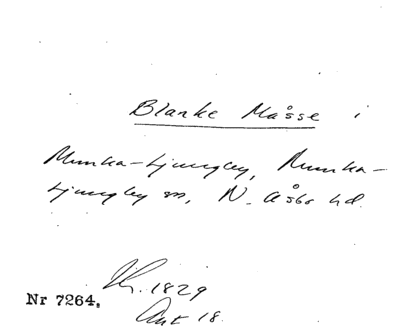 Blanke Måsse i
Munka-Ljungby, Munka-
Ljungby sn, N. Åsbo hd.
1829
Ant 18.
Nr 7264.